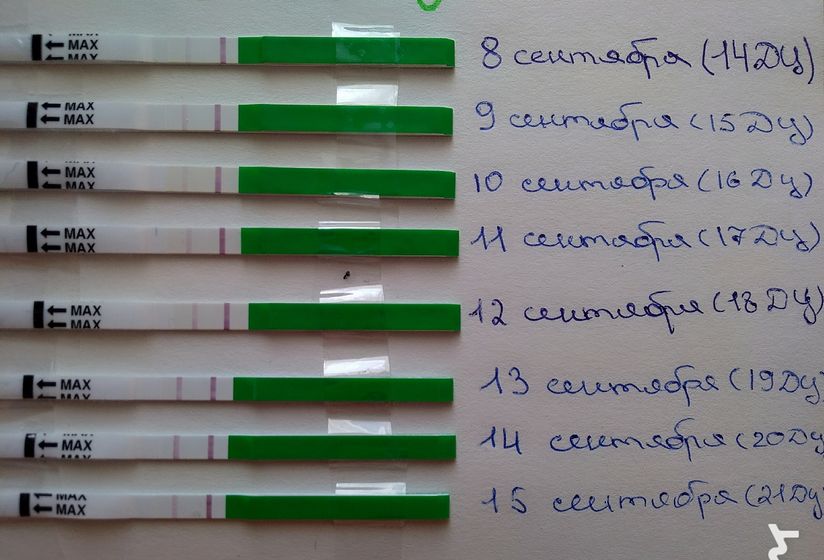 MAX
MAX
8 сентября (14ДЦ)
MAX
MAX
9 сентября (15ДЦ)
MAX
MAX
10 сентября (16ДЦ)
MAX
MAX
11 сентября (17ДЦ)
MAX
MAX
12 сентября (18ДЦ)
MAX
13 сентября (19ДЦ)
MAX
MAX
14 сентября (20ДЦ
MAX
MAX
15 сентября (21ДЦ)